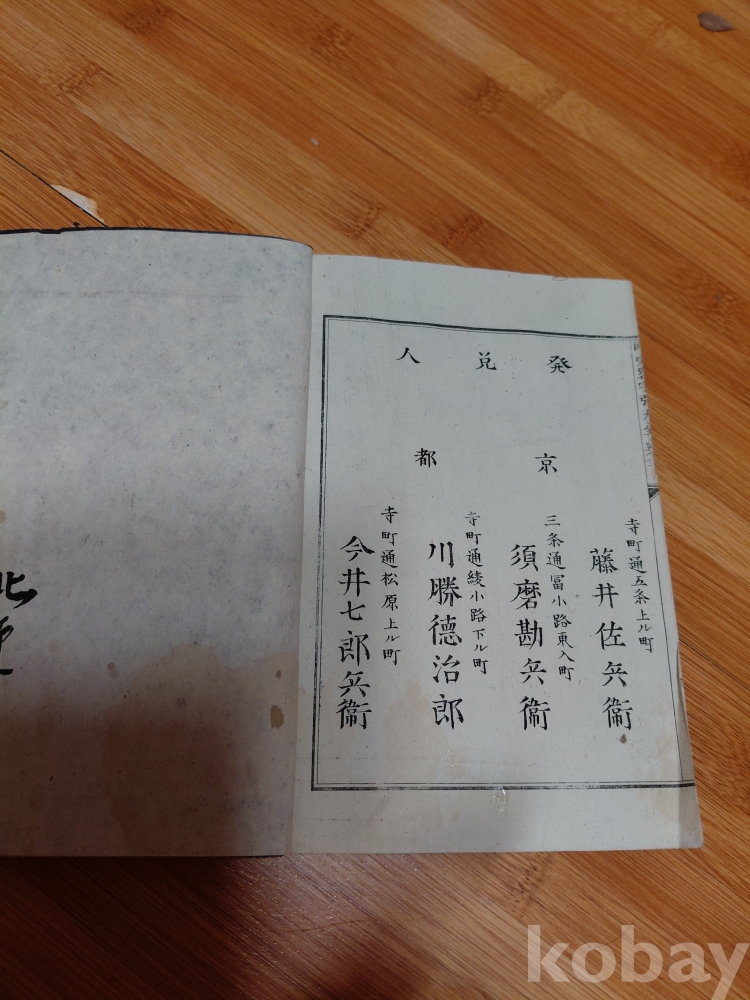 発兌人
京都
寺町通五条上ル町
藤井佐兵衞
三条通冨小路東入町
須磨勘兵衞
寺町通綾小路下ル町
川勝德治郎
寺町通松原上ル町
今井七郎兵衞
kobay